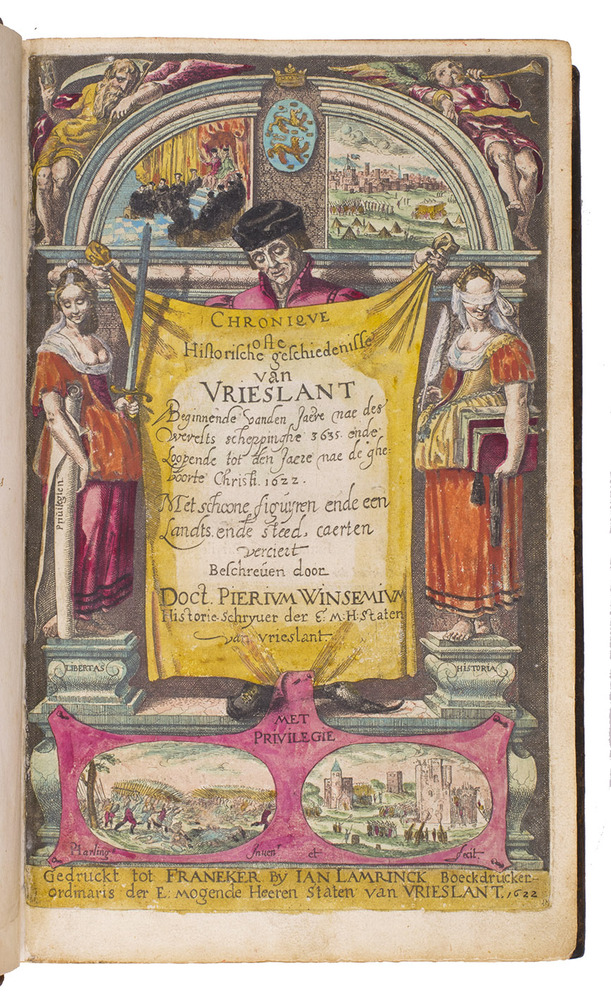 CHRONIQVE
ofte
Historische geschiedenisse
van
VRIESLANT
Beginnende vanden Jaere nae des
Werelts scheppinghe 3635. ende
Loopende tot den Jaere nae de ghe-
boorte Christi. 1622.
Met schoone figuyren ende een
Landts. ende steed. caerten
verciert
Beschreven door
DOCT. PIERIVM WINSEMIVM
Historie-Schryver der E. M. H. Staten
van vrieslant
Privilegien
LIBERTAS
HISTORIA
MET
PRIVILEGIE
PHarlingh Inven. et fecit.
Gedruckt tot FRANEKER BY IAN LAMRINCK Boeckdrucker-
ordinaris der E: mogende Heeren Staten van VRIESLANT. 1622